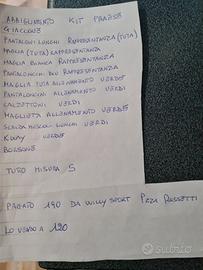 ABBIGLIAMENTO KIT PRAESE
GIACCONE
PANTALONI LUNGHI RAPPRESENTANZA (TUTA)
MAGLIA (TUTA) RAPPRESENTANZA
MAGLIA BIANCA RAPPRESENTANZA
PANTALONCINI BLU RAPPRESENTANZA
MAGLIA TUTA ALLENAMENTO VERDE
PANTALONCINI ALLENAMENTO VERDI
CALZETTONI VERDI
MAGLIETTA ALLENAMENTO VERDE
SCALDA MUSCOLI LUNGHI VERDI
KWAY VERDE
BORSONE
TUTTO MISURA S
PAGATO 190 DA WILLY SPORT PZZA ROSSETTI
LO VENDO A 120
subito